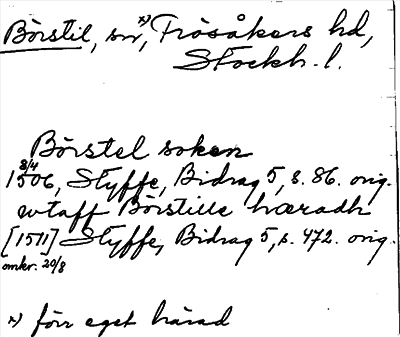 Börstil, sn, *) Frösåkers hd,
Stockh. l.
Börstel soken
1506, 8/4 Styffe, Bidrag 5, s. 86. orig.
wtaff Börstille hæradh
[1511] Styffe, Bidrag 5, s. 472. orig.
omkr. 20/8
*) förr eget härad